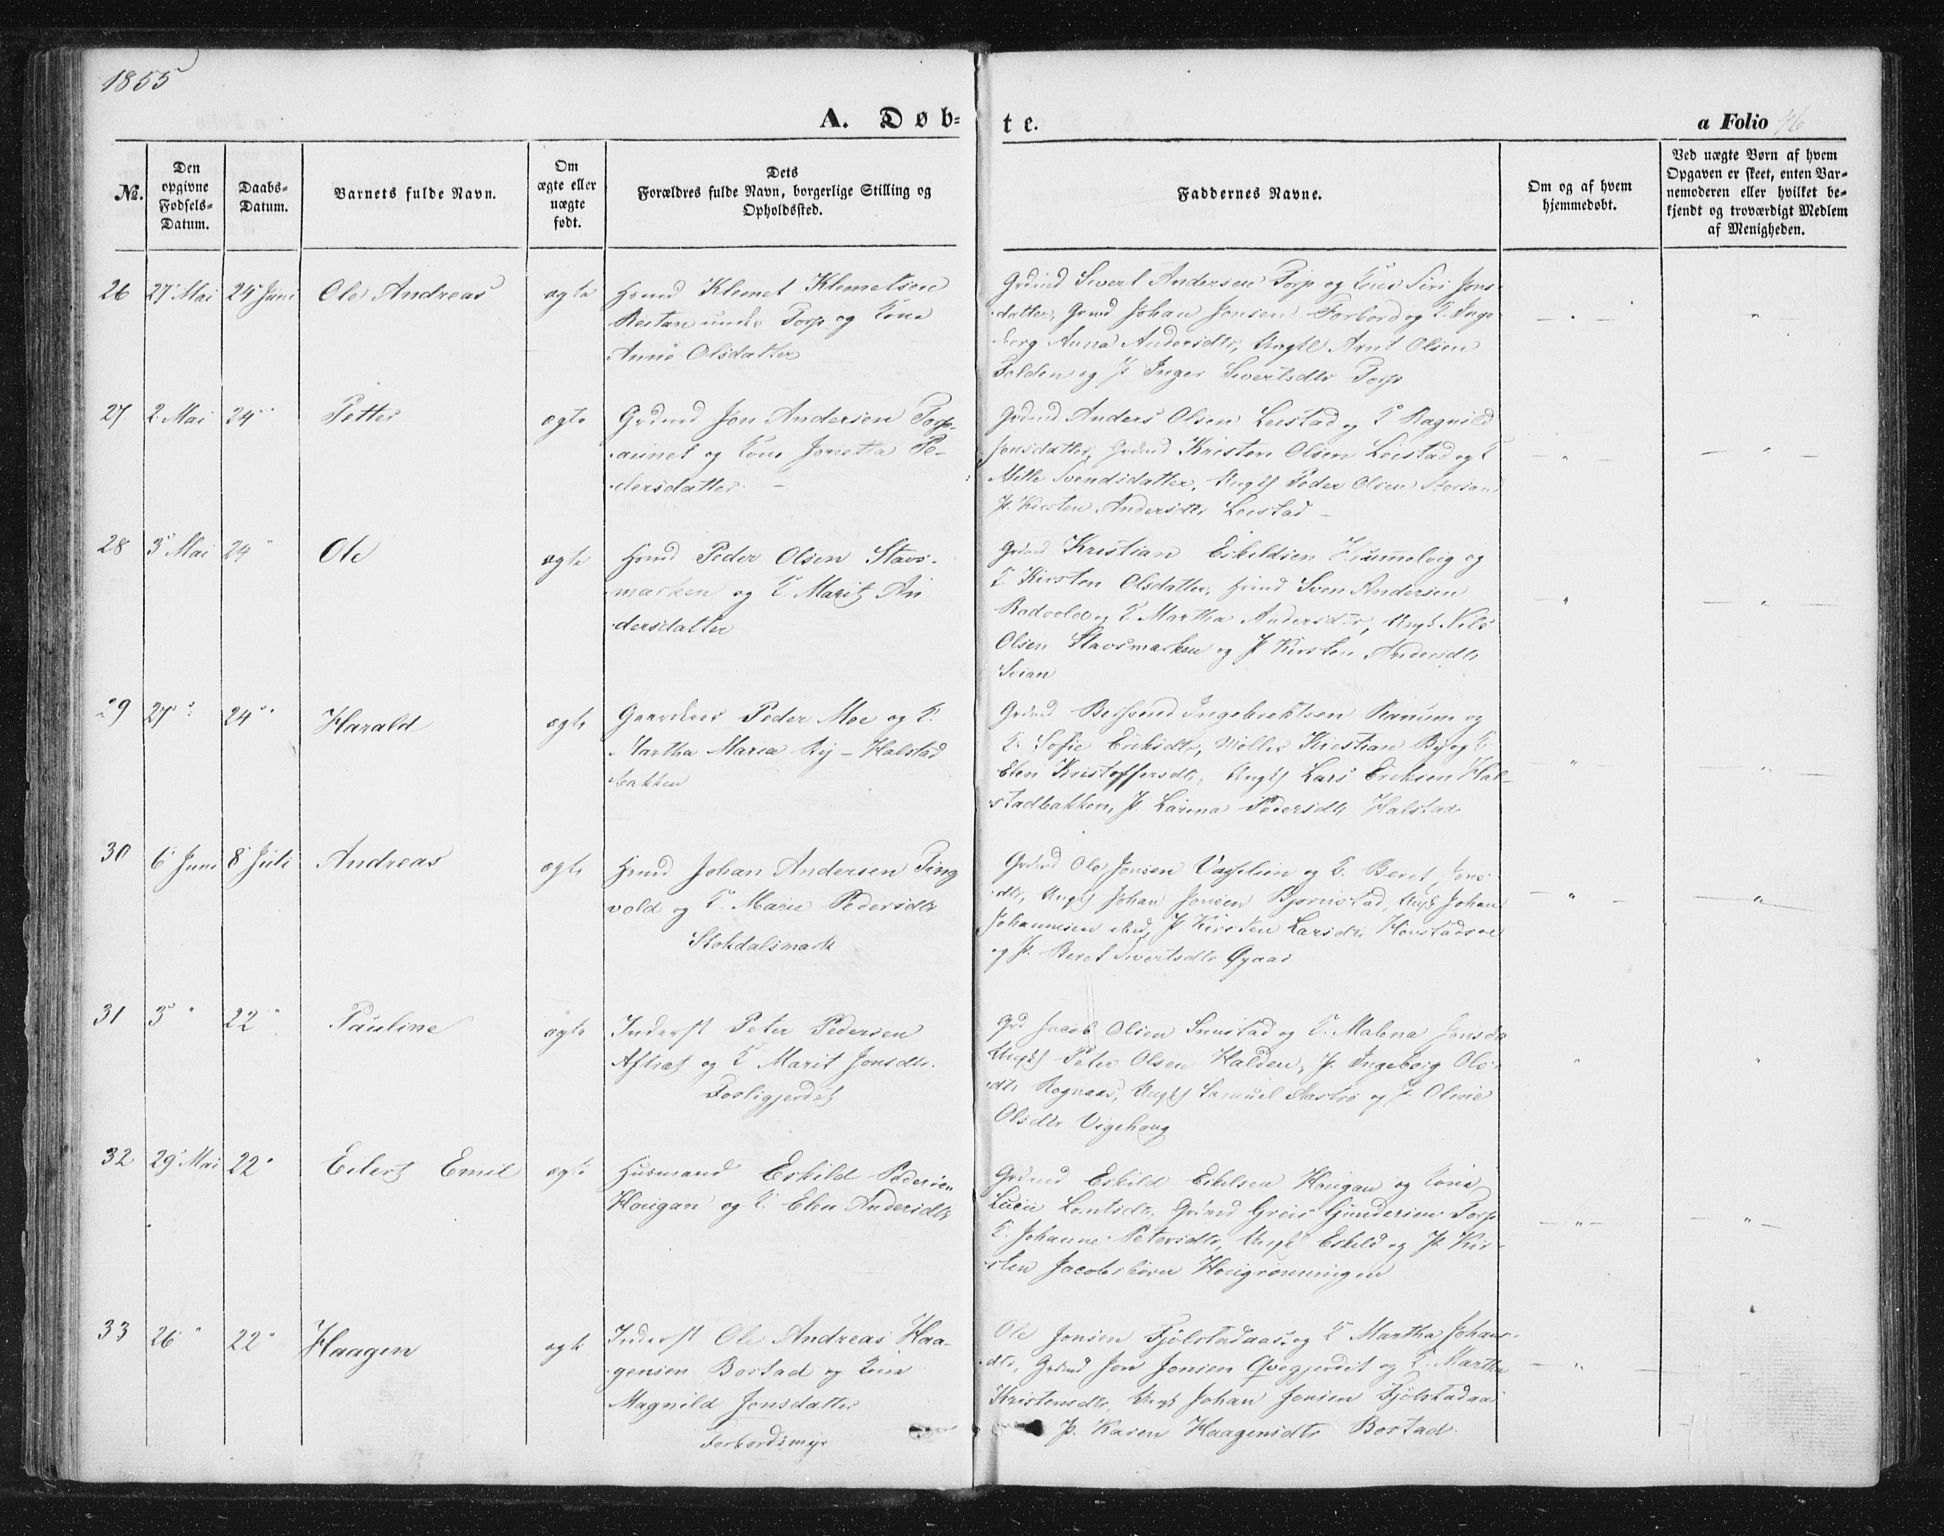 1855
A. Døb=
te.
a Folio 46
№.
Den
opgivne
Fødsels-
Datum.
Daabs-
Datum.
Barnets fulde Navn.
Om
ægte eller
uægte
født.
Dets
Forældres fulde Navn, borgerlige Stilling og
Opholdssted.
Faddernes Navne.
Om og af hvem
hjemmedøbt.
Ved uægte Børn af hvem
Opgaven er skeet, enten Bar-
nemoderen eller hvilket be-
kjendt og troværdigt Medlem
af Menigheden.
26 27 Mai 24 Juni Ole Andreas ægte
Hmd Klemet Klemetsen
Restan under Torp og Kone
Anne Olsdatter
Grdmd Sivert Andersen Torp og Kone Siri Jons-
datter, Grmd Johan Jonsen Forbord og K. Inge-
borg Anna Andersdtr, Ungk Arnt Olsen
Folden og P. Inger Sivertsdtr Torp
27 2 Mai 24 " Petter ægte
Grdmd Jon Andersen Torp-
aunet og Kone Jonetta Pe-
dersdatter. —
Grdmd Anders Olsen Leistad og K Ragnild
Jonsdatter, Grdmd Kristen Olsen Leistad og K
Mette Svendsdatter, Ungk Peder Olsen
P. Kirsten Andersdtr Leistad —
28 3 Mai 24 " Ole ægte
Hmd Peder Olsen Stavs-
marken og K Marit An
dersdatter
Grdmd Kristian Eskildsen Hummelvig og
K Kirsten Olsdatter, Hmd Sven Andersen
Radvold og K Martha Andersdtr, Ungk Nils
Olsen Stavsmarken og P Kirsten Andersdtr
29 27 " 24 " Harald ægte
Gaardbr Peder Moe og K.
Martha Maria By — Halstad
bakken
Grdmd Ingebrektsen Ranum og
K. Sofie Eriksdtr, Møller Kristian By og K.
Elen Kristoffersdtr, Ungk Lars Eriksen Hal-
stadbakken, P. Larina Pedersdtr Halstad
30 6 Juni 8 Juli Andreas ægte
Hmd Johan Andersen Ting
vold og K. Marie Pedersdtr
Stokdalsmark
Grdmd Ole Jonsen Vasslien og K. Beret Jons-
dtr, Ungk Johan Jonsen Bjørnstad, Ungk Johan
Johannesen ibid, P Kirsten Larsdtr
og P. Beret Sivertsdtr Øyaas
31 3 " 22 " Pauline ægte
Inderst Peter Pedersen
og K Marit Jonsdtr.
Grd Jacob Olsen og K. Malena Jonsdt
Ungk Peter Olsen Halden, P. Ingeborg Ols-
dtr Rognaas, Ungk Samuel og P. Olivie
Olsdtr Vigehaug
32 29 Mai 22 " Eilert Emil ægte
Husmand Eskild Pedersen
Hougan og K. Elen Andersdtr
Grdmd Eskild Eskelsen Hougan og Kone
Lucie Lorntsdtr, Grdmd Greis Gundersen Torp
K. Johanne Petersdtr, Ungk Eskild og P. Kir-
sten Jacobsbørn Hougrønningen
33 26 " 22 " Haagen ægte
Inderst Ole Andreas Haa-
gensen Borstad og Kone
Magnild Jonsdatter
Forbordsmyr
Ole Jonsen Fjølstadaas og K Martha Johans-
dtr, Grdmd Jon Jonsen Qvegjerdet og K. Martha
Kristensdtr, Ungk Johan Jonsen Fjølstadaas
P. Karen Haagensdtr Borstad.